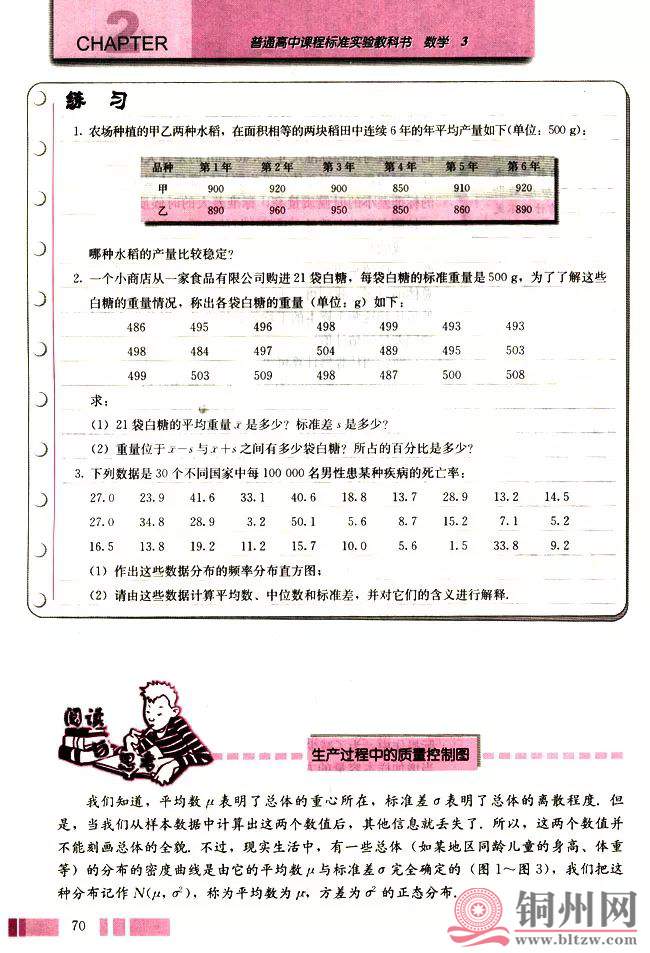 2
CHAPTER
普通高中课程标准实验教科书 数学 3
练 习
1. 农场种植的甲乙两种水稻，在面积相等的两块稻田中连续 6 年的年平均产量如下(单位：500 g)：
品种 第 1 年 第 2 年 第 3 年 第 4 年 第 5 年 第 6 年
甲 900 920 900 850 910 920
乙 890 960 950 850 860 890
哪种水稻的产量比较稳定?
2. 一个小商店从一家食品有限公司购进 21 袋白糖，每袋白糖的标准重量是 500 g，为了了解这些
白糖的重量情况，称出各袋白糖的重量（单位：g）如下：
486 495 496 498 499 493 493
498 484 497 504 489 495 503
499 503 509 498 487 500 508
求：
(1) 21 袋白糖的平均重量 x̄ 是多少? 标准差 s 是多少?
(2) 重量位于 x̄－s 与 x̄＋s 之间有多少袋白糖? 所占的百分比是多少?
3. 下列数据是 30 个不同国家中每 100 000 名男性患某种疾病的死亡率：
27.0 23.9 41.6 33.1 40.6 18.8 13.7 28.9 13.2 14.5
27.0 34.8 28.9 3.2 50.1 5.6 8.7 15.2 7.1 5.2
16.5 13.8 19.2 11.2 15.7 10.0 5.6 1.5 33.8 9.2
(1) 作出这些数据分布的频率分布直方图；
(2) 请由这些数据计算平均数、中位数和标准差，并对它们的含义进行解释.
阅读
与
思考
生产过程中的质量控制图
我们知道，平均数 μ 表明了总体的重心所在，标准差 σ 表明了总体的离散程度. 但
是，当我们从样本数据中计算出这两个数值后，其他信息就丢失了. 所以，这两个数值并
不能刻画总体的全貌. 不过，现实生活中，有一些总体（如某地区同龄儿童的身高、体重
等）的分布的密度曲线是由它的平均数 μ 与标准差 σ 完全确定的（图 1～图 3），我们把这
种分布记作 N(μ, σ²)，称为平均数为 μ，方差为 σ² 的正态分布.
70
铜州网
www.bltzw.com